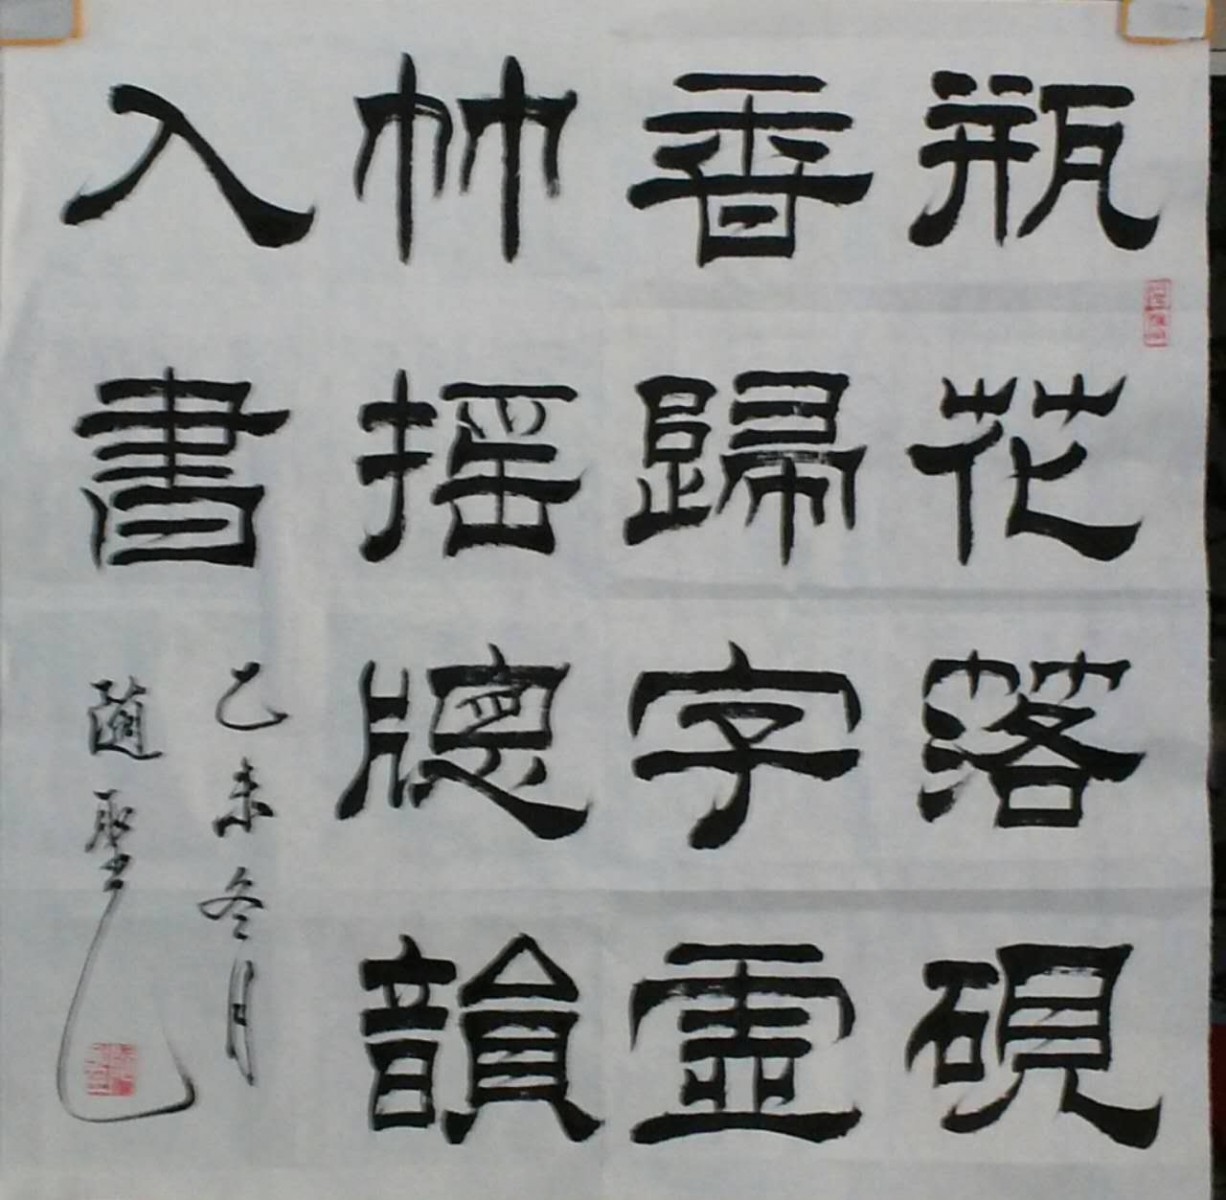 瓶花落硯
香歸字霊
竹摇牕韻
入書
乙未冬月
隨聖